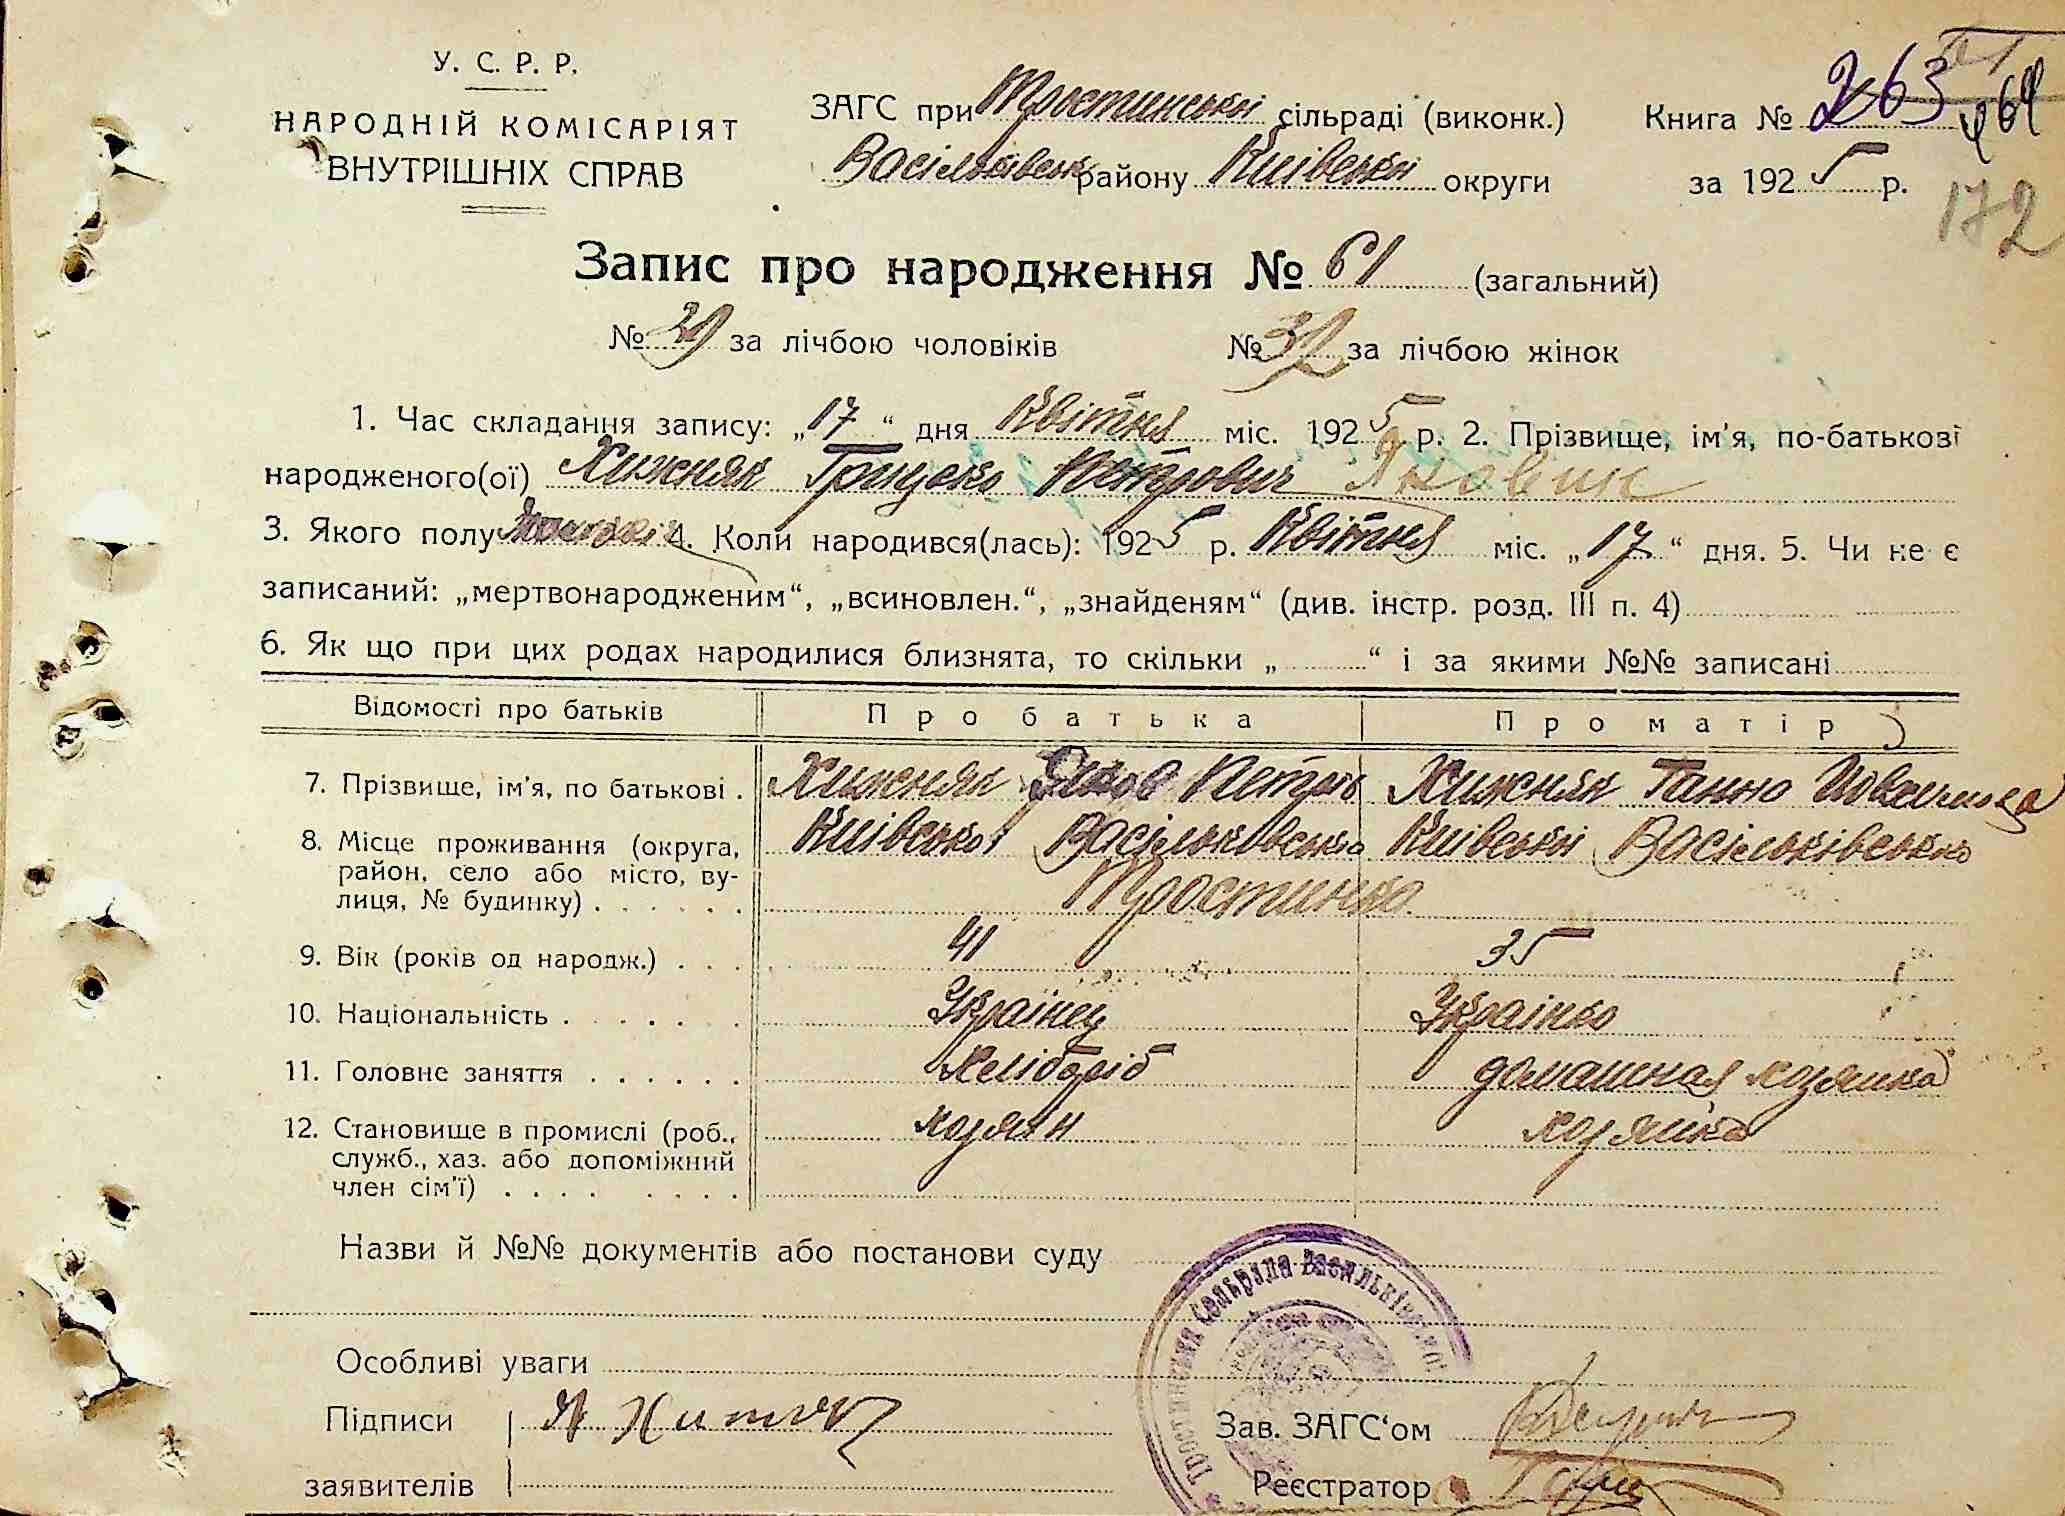 У. С. Р. Р.
НАРОДНІЙ КОМІСАРІЯТ
ВНУТРІШНІХ СПРАВ
ЗАГС при Тростинській сільраді (виконк.)
Васільківськ району Київської округи
Книга № 263 264
за 1925 р.
172
Запис про народження № 61 (загальний)
№ 29 за лічбою чоловіків № 32 за лічбою жінок
1. Час складання запису: „17“ дня Квітня міс. 1925 р. 2. Прізвище, ім'я, по-батькові
народженого(ої) Хижняк Грицько Петрович Якович
3. Якого полу 4. Коли народився(лась): 1925 р. Квітня міс. „17“ дня. 5. Чи не є
записаний: „мертвонародженим“, „всиновлен.“, „знайденям“ (див. інстр. розд. III п. 4)
6. Як що при цих родах народилися близнята, то скільки „ “ і за якими №№ записані
Відомості про батьків Про батька Про матір
7. Прізвище, ім'я, по батькові . Хижняк Яков Петров Хижняк Ганна
8. Місце проживання (округа, Київської Васільковська Київській Васільківсько
район, село або місто, ву- Тростинка
лиця, № будинку) . . . . . .
9. Вік (років од народж.) . . . 41 35
10. Національність . . . . . . Українец Українка
11. Головне заняття . . . . . . хлібороб домашная хозяика
12. Становище в промислі (роб., хозяин хозяика
служб., хаз. або допоміжний
член сім'ї) . . . . . . . .
Назви й №№ документів або постанови суду
Особливі уваги
Підписи
заявителів
Зав. ЗАГС'ом
Реєстратор